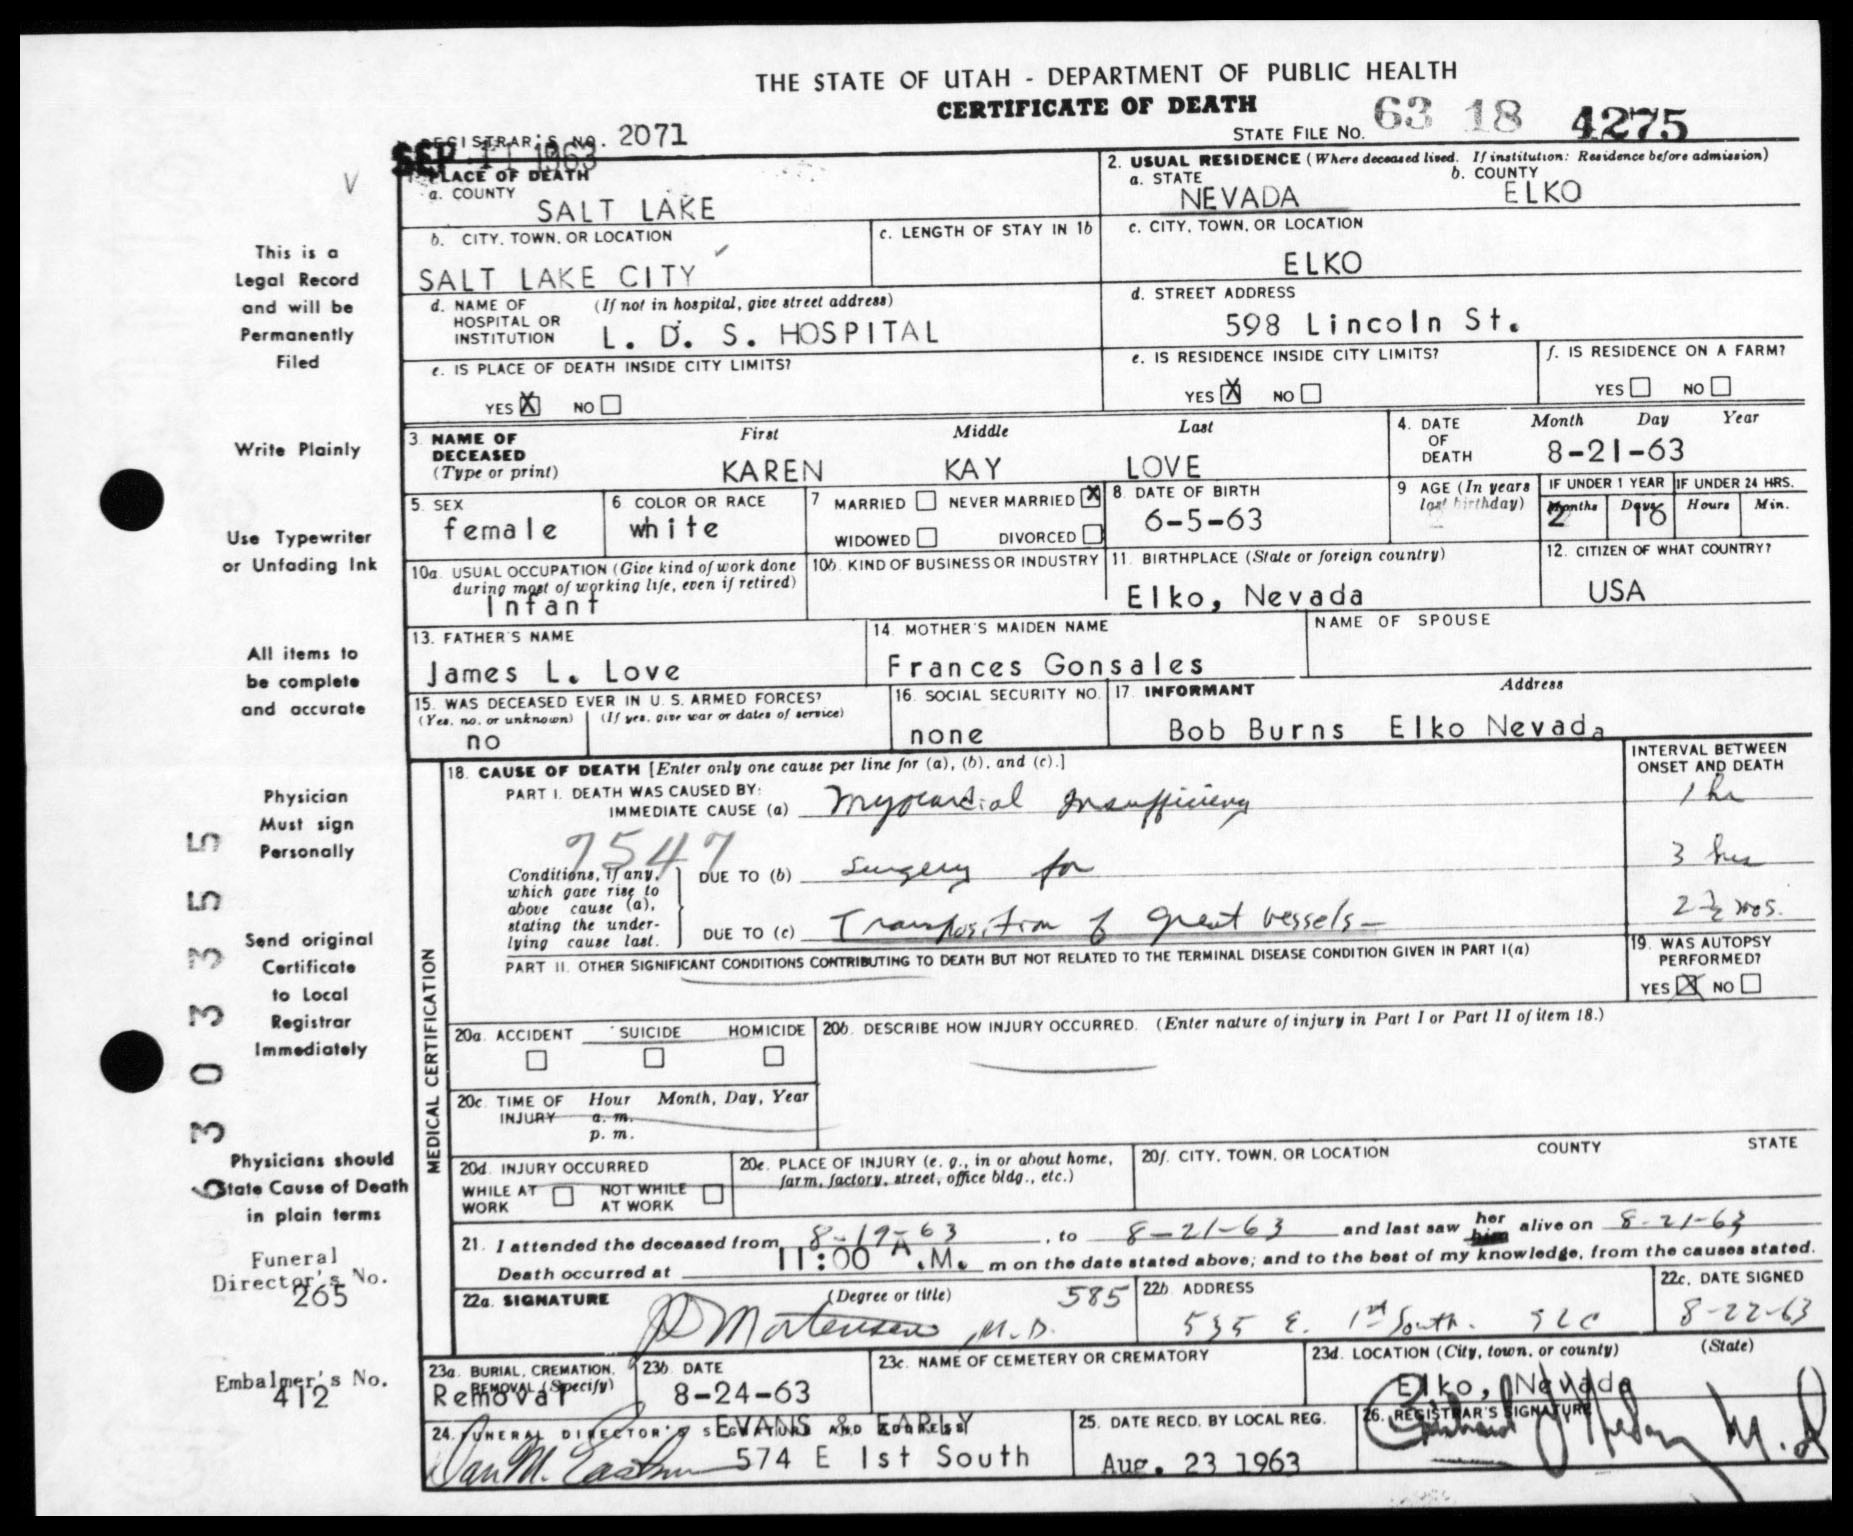 THE STATE OF UTAH - DEPARTMENT OF PUBLIC HEALTH
CERTIFICATE OF DEATH
REGISTRAR'S NO. 2071
STATE FILE NO. 63 18 4275
SEP 11 1963
1. PLACE OF DEATH
a. COUNTY
SALT LAKE
2. USUAL RESIDENCE (Where deceased lived. If institution: Residence before admission)
a. STATE b. COUNTY
NEVADA ELKO
b. CITY, TOWN, OR LOCATION
SALT LAKE CITY
c. LENGTH OF STAY IN 1b
c. CITY, TOWN, OR LOCATION
ELKO
d. NAME OF HOSPITAL OR INSTITUTION (If not in hospital, give street address)
L. D. S. HOSPITAL
d. STREET ADDRESS
598 Lincoln St.
e. IS PLACE OF DEATH INSIDE CITY LIMITS?
YES X NO
e. IS RESIDENCE INSIDE CITY LIMITS?
YES X NO
f. IS RESIDENCE ON A FARM?
YES NO
3. NAME OF DECEASED (Type or print)
First Middle Last
KAREN KAY LOVE
4. DATE OF DEATH
Month Day Year
8-21-63
5. SEX
female
6 COLOR OR RACE
white
7 MARRIED NEVER MARRIED X
WIDOWED DIVORCED
8. DATE OF BIRTH
6-5-63
9 AGE (In years last birthday)
IF UNDER 1 YEAR IF UNDER 24 HRS.
Months Days Hours Min.
2 16
10a. USUAL OCCUPATION (Give kind of work done during most of working life, even if retired)
Infant
10b. KIND OF BUSINESS OR INDUSTRY
11. BIRTHPLACE (State or foreign country)
Elko, Nevada
12. CITIZEN OF WHAT COUNTRY?
USA
13. FATHER'S NAME
James L. Love
14. MOTHER'S MAIDEN NAME
Frances Gonsales
NAME OF SPOUSE
15. WAS DECEASED EVER IN U.S. ARMED FORCES?
(Yes, no, or unknown) (If yes, give war or dates of service)
no
16. SOCIAL SECURITY NO.
none
17. INFORMANT Address
Bob Burns Elko Nevada
MEDICAL CERTIFICATION
18. CAUSE OF DEATH [Enter only one cause per line for (a), (b), and (c).]
INTERVAL BETWEEN ONSET AND DEATH
PART I. DEATH WAS CAUSED BY:
IMMEDIATE CAUSE (a) Myocardial Insufficiency 1 hr
7547
Conditions, if any, which gave rise to above cause (a), stating the underlying cause last.
DUE TO (b) Surgery for 3 hrs
DUE TO (c) Transposition of great vessels- 2 1/2 mos.
PART II. OTHER SIGNIFICANT CONDITIONS CONTRIBUTING TO DEATH BUT NOT RELATED TO THE TERMINAL DISEASE CONDITION GIVEN IN PART I(a)
19. WAS AUTOPSY PERFORMED?
YES X NO
20a. ACCIDENT SUICIDE HOMICIDE
20b. DESCRIBE HOW INJURY OCCURRED. (Enter nature of injury in Part I or Part II of item 18.)
20c. TIME OF INJURY Hour Month, Day, Year
a. m.
p. m.
20d. INJURY OCCURRED
WHILE AT WORK NOT WHILE AT WORK
20e. PLACE OF INJURY (e. g., in or about home, farm, factory, street, office bldg., etc.)
20f. CITY, TOWN, OR LOCATION COUNTY STATE
21. I attended the deceased from 8-19-63, to 8-21-63 and last saw her him alive on 8-21-63
Death occurred at 11:00 A.M. m on the date stated above; and to the best of my knowledge, from the causes stated.
22a. SIGNATURE (Degree or title) 585
J D Mortensen, M.D.
22b ADDRESS
535 E. 1st South. SLC
22c. DATE SIGNED
8-22-63
23a. BURIAL, CREMATION, REMOVAL (Specify)
Removal
23b. DATE
8-24-63
23c. NAME OF CEMETERY OR CREMATORY
23d. LOCATION (City, town, or county) (State)
Elko, Nevada
24. FUNERAL DIRECTOR'S SIGNATURE AND ADDRESS
EVANS & EARLY
574 E 1st South
25. DATE RECD. BY LOCAL REG.
Aug. 23 1963
26. REGISTRAR'S SIGNATURE
M.D.
This is a
Legal Record
and will be
Permanently
Filed
Write Plainly
Use Typewriter
or Unfading Ink
All items to
be complete
and accurate
Physician
Must sign
Personally
Send original
Certificate
to Local
Registrar
Immediately
Physicians should
State Cause of Death
in plain terms
Funeral
Director's No.
265
Embalmer's No.
412